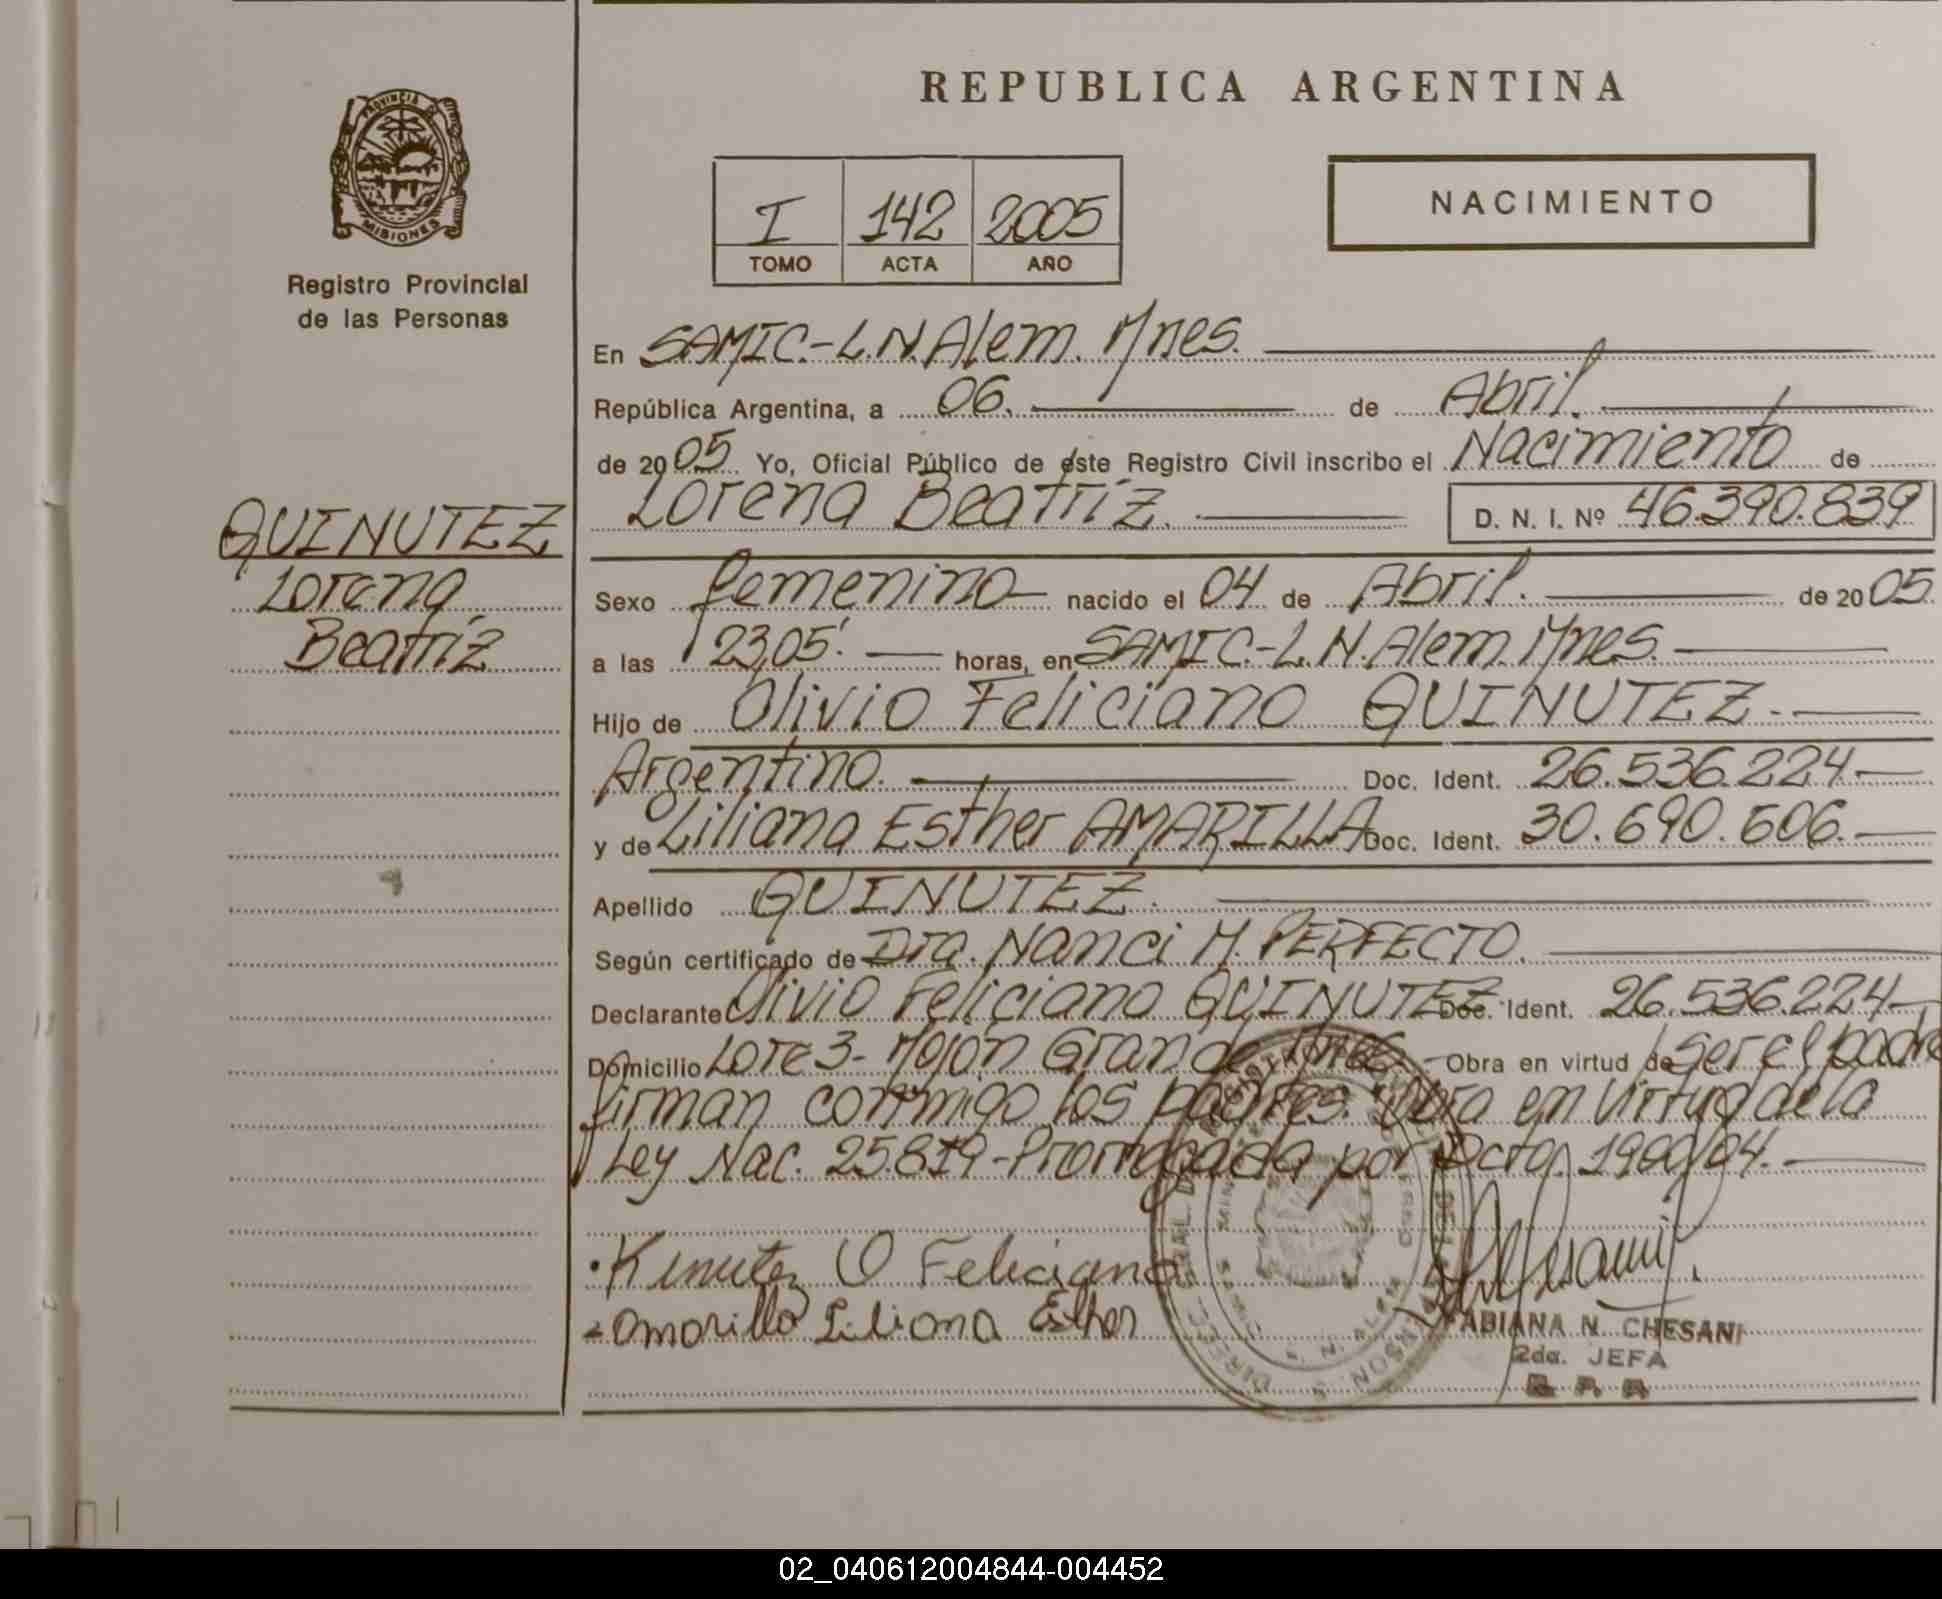 REPUBLICA ARGENTINA
PROVINCIA DE
MISIONES
Registro Provincial
de las Personas
I 142 2005
TOMO ACTA AÑO
NACIMIENTO
En SAMIC.-L.N.Alem. Mnes.
República Argentina, a 06. de Abril.
de 2005 Yo, Oficial Público de este Registro Civil inscribo el Nacimiento de
Lorena Beatriz. D. N. I. Nº 46.390.839
QUINUTEZ
Lorena
Beatriz
Sexo femenino nacido el 04 de Abril. de 2005
a las 23,05'. horas, en SAMIC.-L.N.Alem. Mnes.
Hijo de Olivio Feliciano QUINUTEZ.-
Argentino. Doc. Ident. 26.536.224
y de Liliana Esther AMARILLA Doc. Ident. 30.690.606.
Apellido QUINUTEZ.
Según certificado de Dra. Nanci M. PERFECTO.
Declarante Olivio Feliciano QUINUTEZ Doc. Ident. 26.536.224
Domicilio Lote 3- Mojón Grande Mnes. Obra en virtud de ser el padre
firman conmigo los padres. Obra en virtud de la
Ley Nac. 25.819-Prorrogada por Dcto. 1900/04.
Kinutez O Feliciano
Amarilla Liliana Esther
FABIANA N. CHESANI
2da. JEFA
02_040612004844-004452